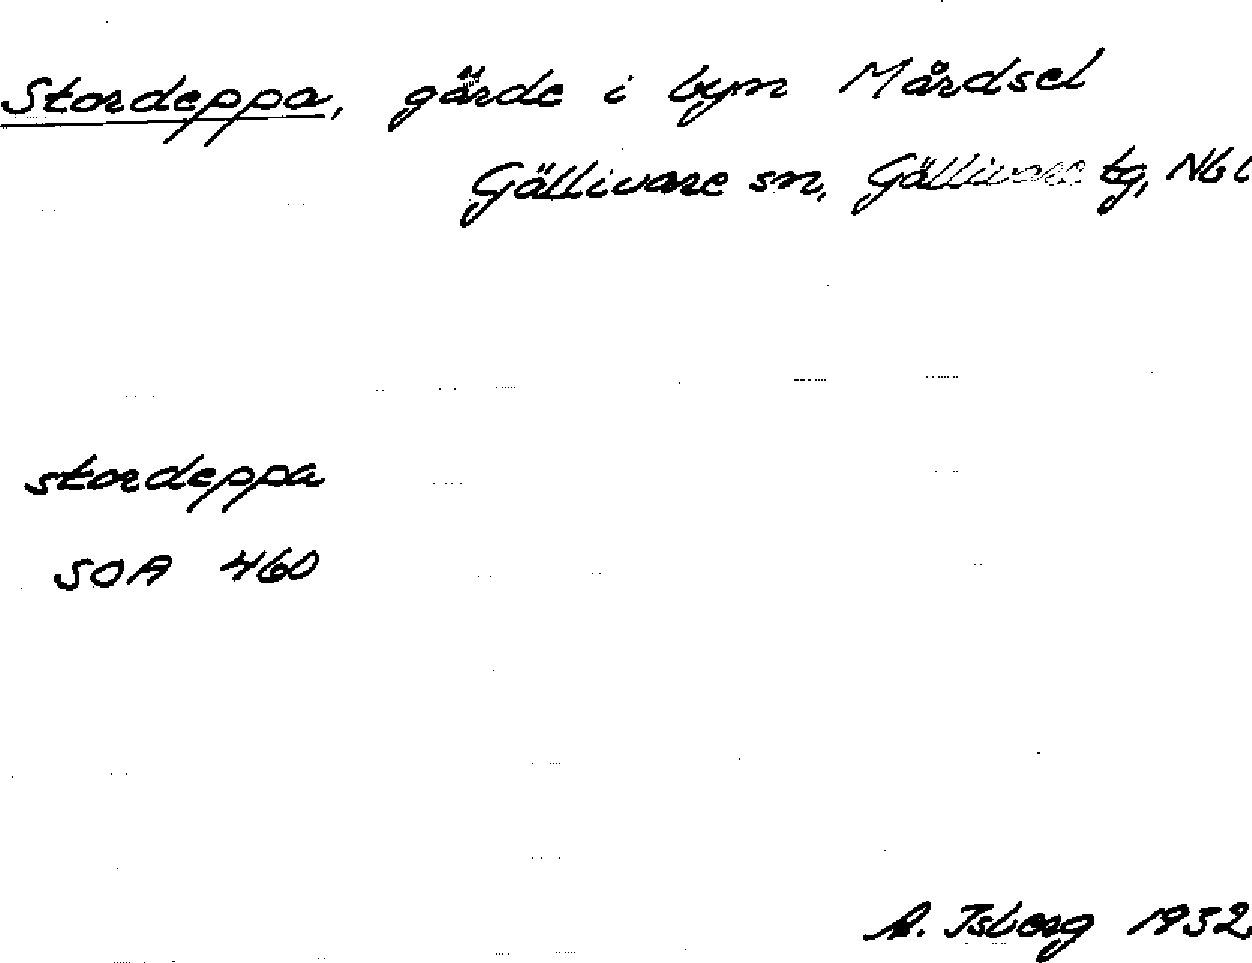 Stordeppa, gärde i byn Mårdsel
Gällivare sn, Gällivare tg, Nbl
stordeppa
SOA 460
A. Isberg 1932